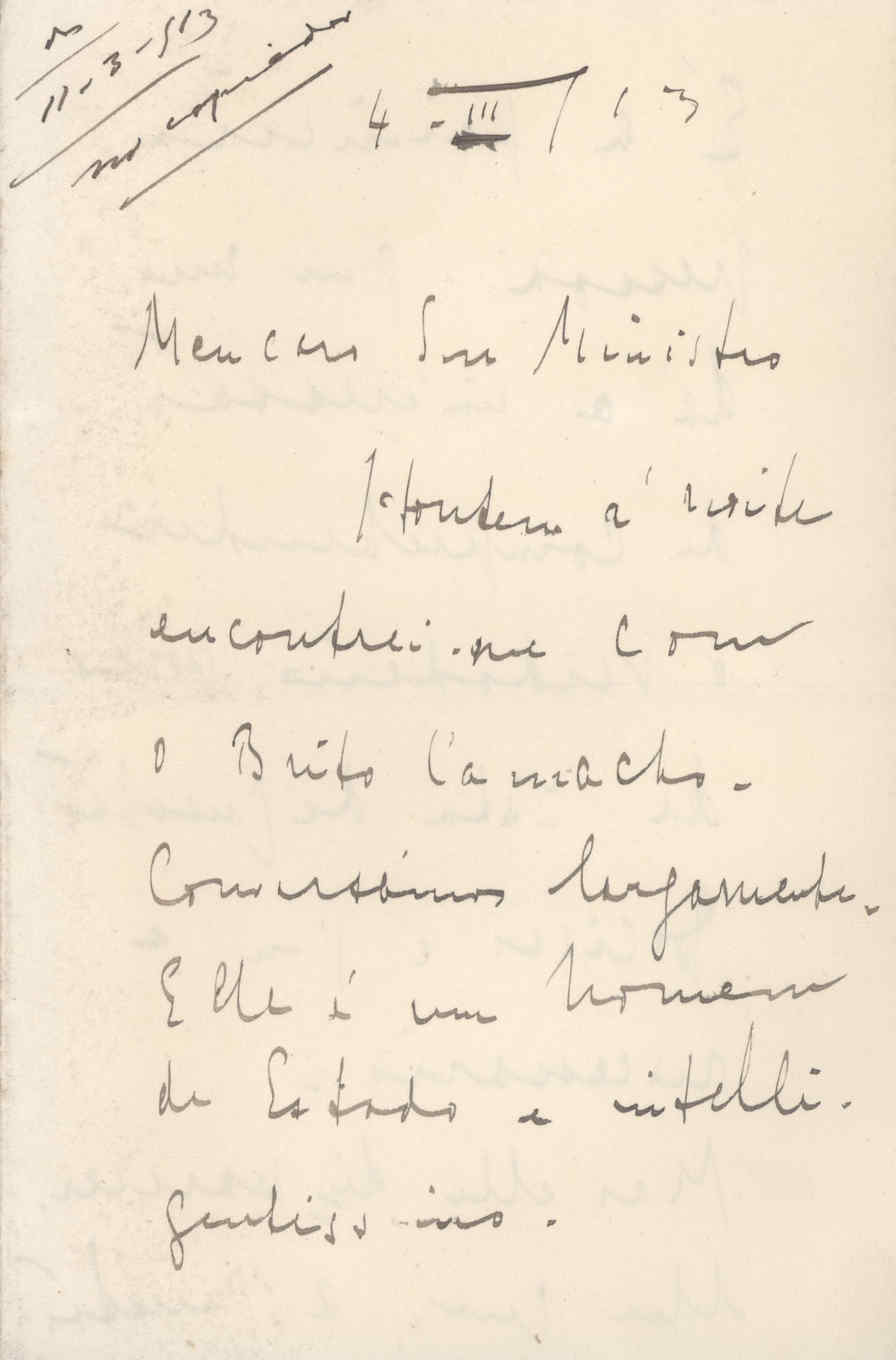 11-3-913
no copiador
4-III/13
Meu caro Snr Ministro
Hontem á noite
encontrei-me com
o Brito Camacho.
Conversámos largamente.
Elle é um homem
de Estado e intelli-
gentissimo.